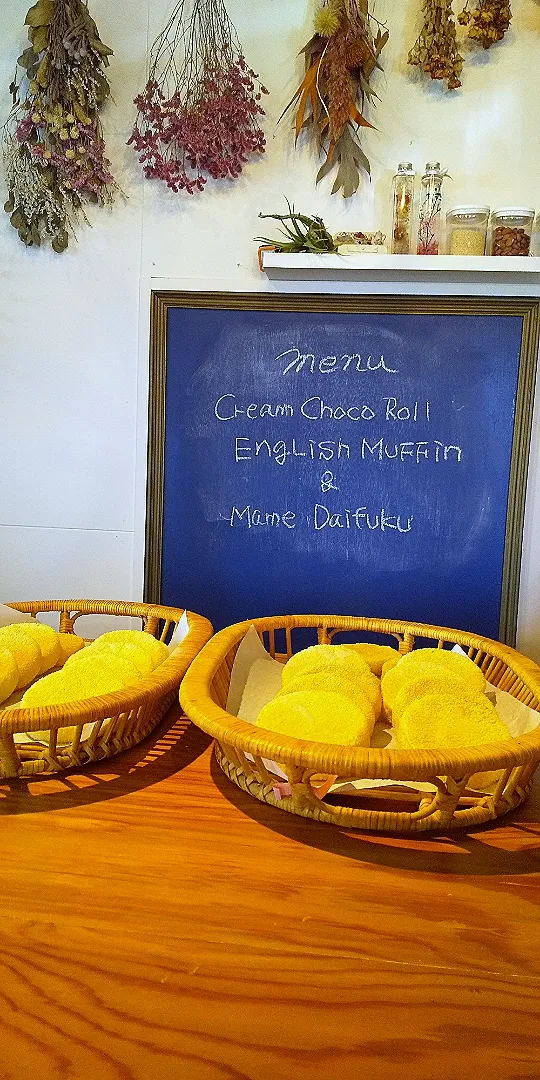 menu
Cream Choco Roll
ENGLISh MUFFin
&
Mame Daifuku